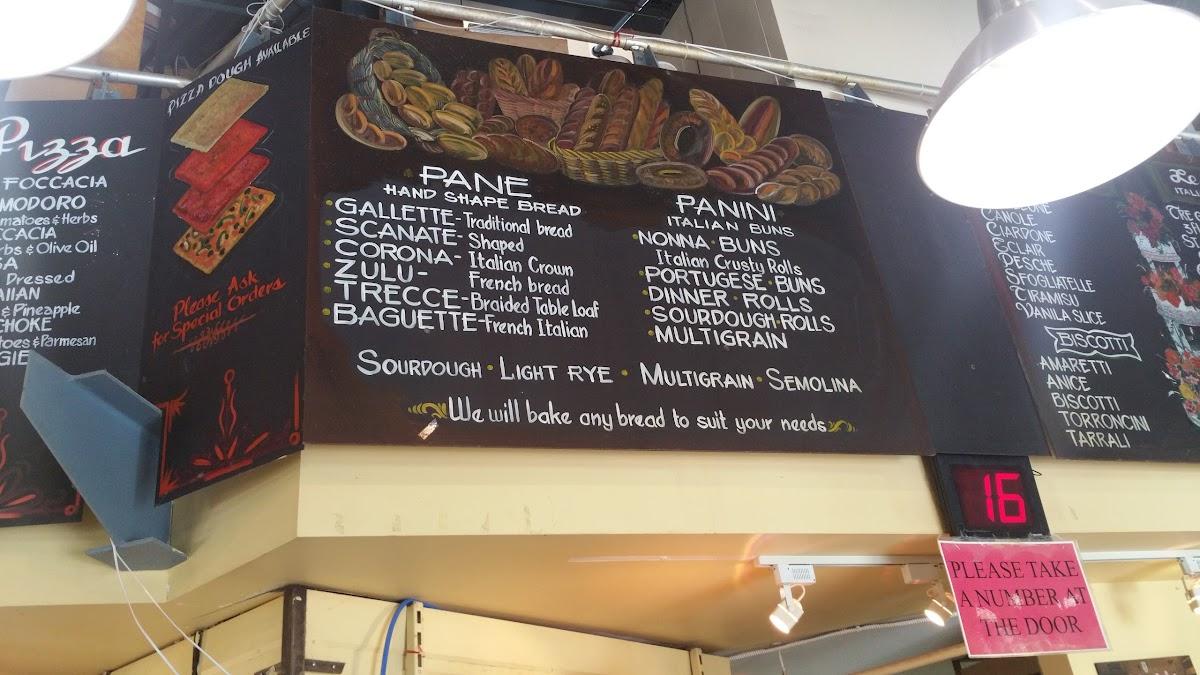 Pizza
FOCCACIA
Herbs
Olive Oil
Dressed
& Pineapple
Parmesan
PIZZA DOUGH AVAILABLE
Please Ask
for Special Orders
PANE
HAND SHAPE BREAD
GALLETTE - Traditional bread
SCANATE - Shaped
CORONA - Italian Crown
ZULU - French bread
TRECCE - Braided Table loaf
BAGUETTE - French Italian
PANINI
ITALIAN BUNS
NONNA BUNS
Italian Crusty Rolls
PORTUGESE BUNS
DINNER ROLLS
SOURDOUGH ROLLS
MULTIGRAIN
SOURDOUGH • LIGHT RYE • MULTIGRAIN • SEMOLINA
We will bake any bread to suit your needs
CANOLE
CIARDONE
ECLAIR
PESCHE
SFOGLIATELLE
TIRAMISU
VANILA SLICE
BISCOTTI
AMARETTI
ANICE
BISCOTTI
TORRONCINI
TARRALI
16
PLEASE TAKE
A NUMBER AT
THE DOOR